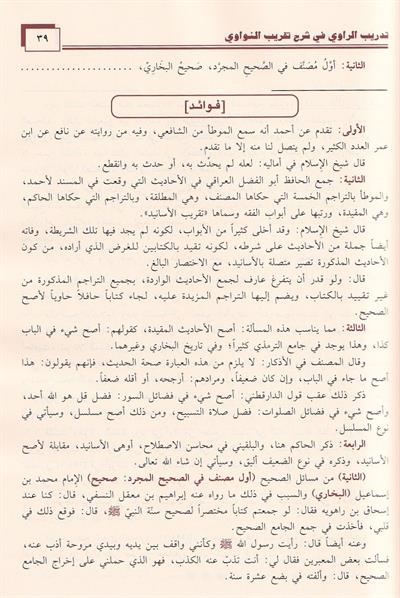 تدريب الراوي في شرح تقريب النواوي
٣٩
الثانية: أوَّلُ مُصَنَّف في الصَّحيحِ المجرَّد، صَحيحُ البخَاريِّ،
[فـوائـد]
الأولى: تقدم عن أحمد أنه سمع الموطأ من الشافعي، وفيه من روايته عن نافع عن ابن
عمر العدد الكثير، ولم يتصل لنا منه إلا ما تقدم.
قال شيخ الإسلام في أماليه: لعله لم يحدِّث به، أو حدث به وانقطع.
الثانية: جمع الحافظ أبو الفضل العراقي في الأحاديث التي وقعت في المسند لأحمد،
والموطأ بالتراجم الخمسة التي حكاها المصنف، وهي المطلقة، وبالتراجم التي حكاها الحاكم،
وهي المقيدة، ورتبها على أبواب الفقه وسماها «تقريب الأسانيد».
قال شيخ الإسلام: وقد أخلى كثيراً من الأبواب، لكونه لم يجد فيها تلك الشريطة، وفاته
أيضاً جملة من الأحاديث على شرطه، لكونه تقيد بالكتابين للغرض الذي أراده، من كون
الأحاديث المذكورة تصير متصلة بالأسانيد، مع الاختصار البالغ.
قال: ولو قدر أن يتفرغ عارف لجمع الأحاديث الواردة، بجميع التراجم المذكورة من
غير تقييد بالكتاب، ويضم إليها التراجم المزيدة عليه، لجاء كتاباً حافلاً حاوياً لأصح
الصحيح.
الثالثة: مما يناسب هذه المسألة: أصح الأحاديث المقيدة، كقولهم: أصح شيء في الباب
كذا، وهذا يوجد في جامع الترمذي كثيراً؛ وفي تاريخ البخاري وغيرهما.
وقال المصنف في الأذكار: لا يلزم من هذه العبارة صحة الحديث، فإنهم يقولون: هذا
أصح ما جاء في الباب، وإن كان ضعيفاً، ومرادهم: أرجحه، أو أقله ضعفاً.
ذكر ذلك عقب قول الدارقطني: أصح شيء في فضائل السور: فضل قل هو الله أحد،
وأصح شيء في فضائل الصلوات: فضل صلاة التسبيح، ومن ذلك أصح مسلسل، وسيأتي في
نوع المسلسل.
الرابعة: ذكر الحاكم هنا، والبلقيني في محاسن الاصطلاح، أوهى الأسانيد، مقابلة لأصح
الأسانيد، وذكره في نوع الضعيف أليق، وسيأتي إن شاء الله تعالى.
(الثانية) من مسائل الصحيح (أول مصنف في الصحيح المجرد: صحيح) الإمام محمد بن
إسماعيل (البخاري) والسبب في ذلك ما رواه عنه إبراهيم بن معقل النسفي، قال: كنا عند
إسحاق بن راهويه فقال: لو جمعتم كتاباً مختصراً لصحيح سنّة النبيّ ﷺ، قال: فوقع ذلك في
قلبي، فأخذت في جمع الجامع الصحيح.
وعنه أيضاً قال: رأيت رسول الله ﷺ وكأنني واقف بين يديه وبيدي مروحة أذب عنه،
فسألت بعض المعبرين فقال لي: أنت تذبّ عنه الكذب، فهو الذي حملني على إخراج الجامع
الصحيح، قال: وألفته في بضع عشرة سنة.